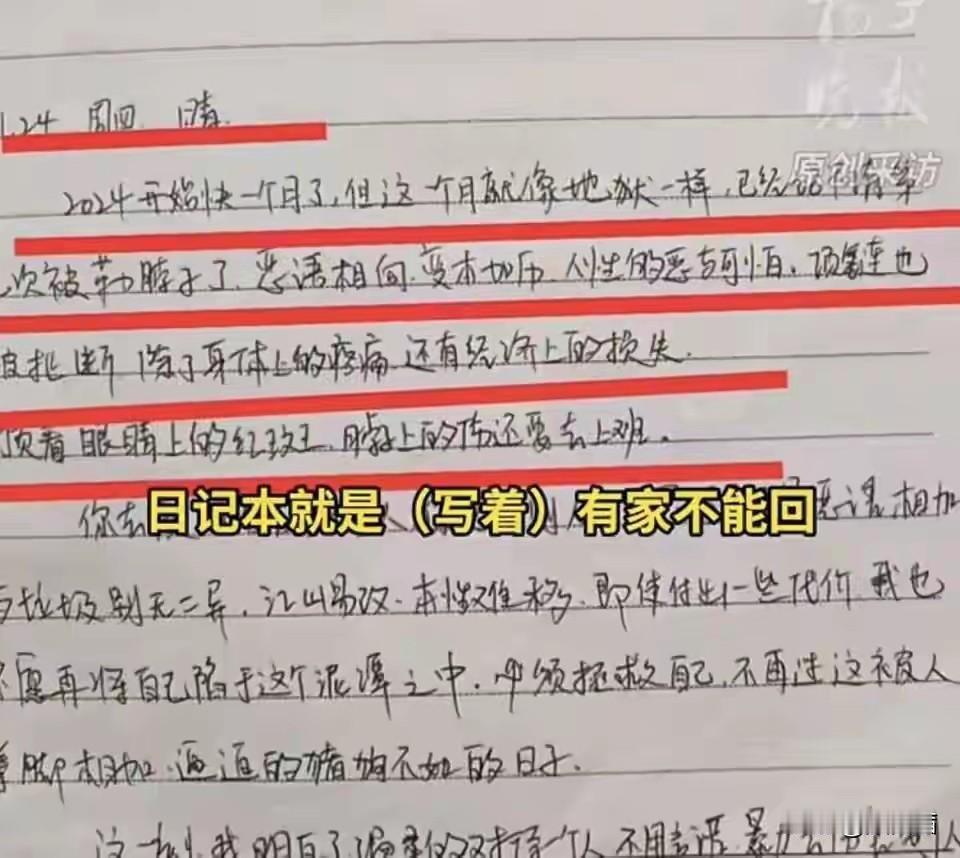 晚报
原创采访
1.24 周四 晴.
2024开始快一个月了,但这一个月就像地狱一样,已经记不清第
次被勒脖子了.恶语相向.变本加厉.人性的恶与可怕.项链也
被扯断 除了身体上的疼痛 还有经济上的损失.
顶着眼睛上的红斑,脖子上的伤还要去上班。
日记本就是(写着)有家不能回
你去 恶语相加
与垃圾别无二异,江山易改.本性难移.即使付出一些代价 我也
不愿再将自己陷于这个泥潭之中.必须拯救自己.不再过这被人
拳脚相加.逼迫的猪狗不如的日子.
这一刻我明白了 一个人 不用言语.暴力